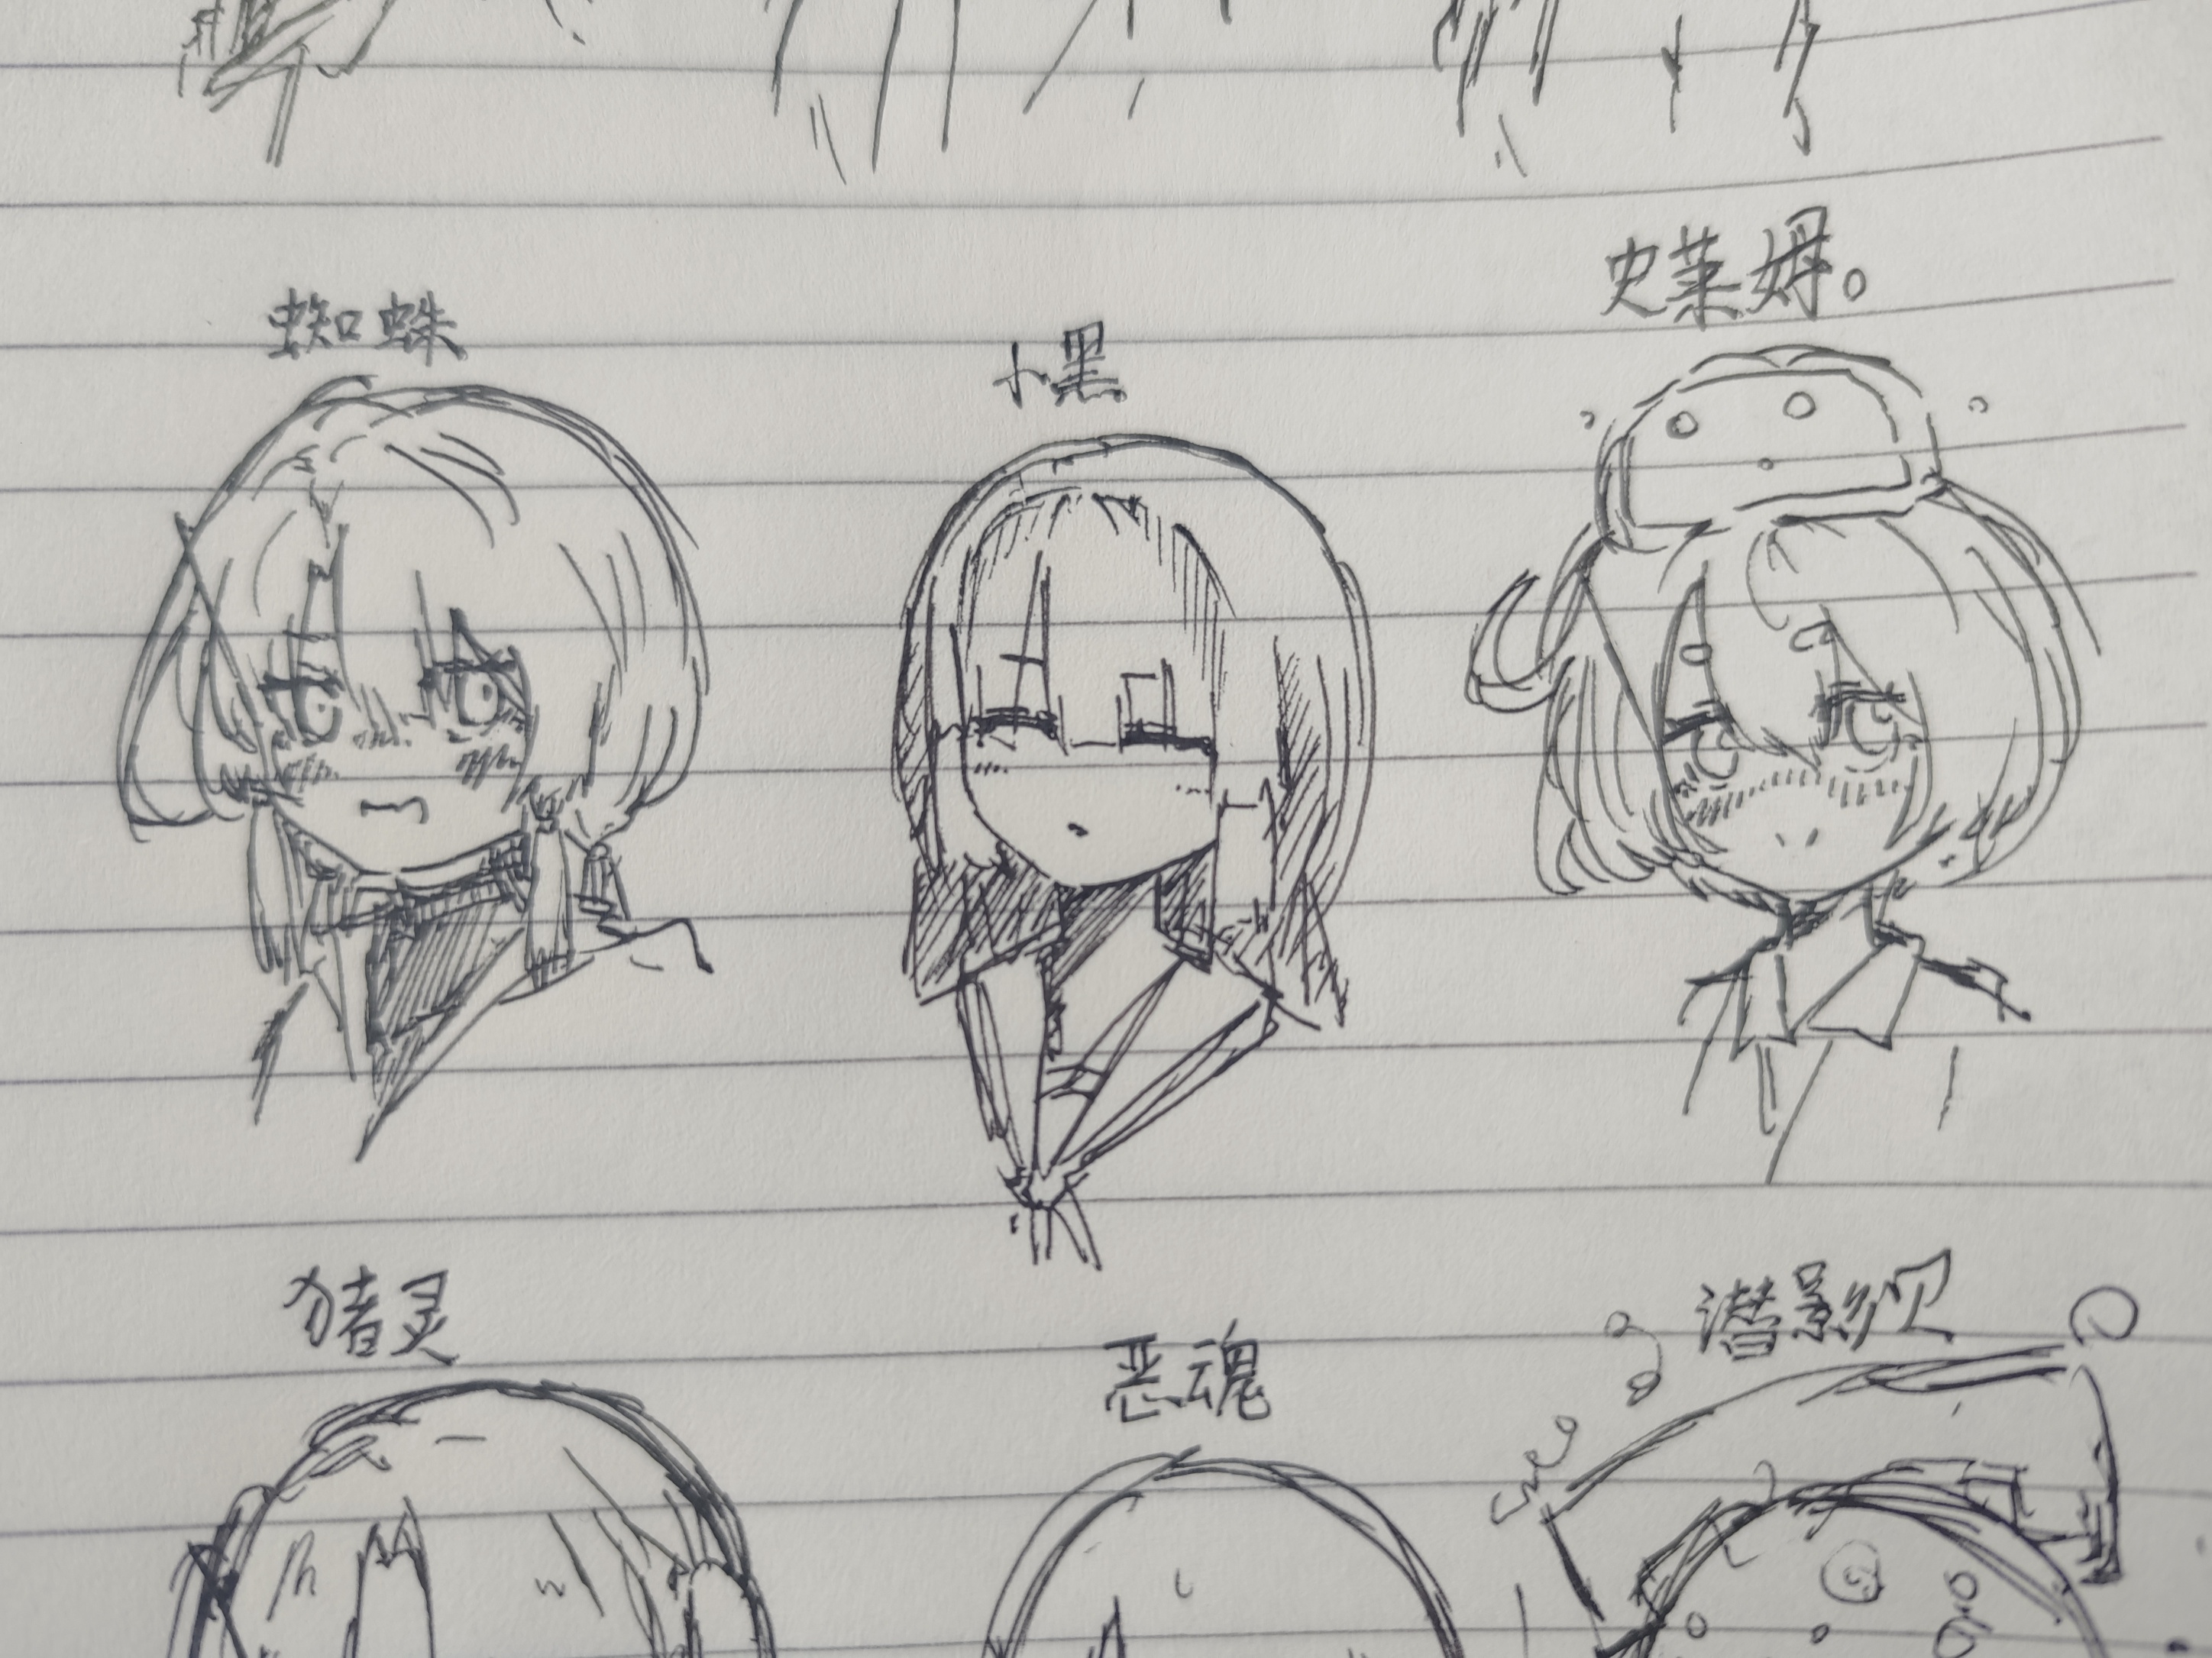 蜘蛛
小黑
史莱姆。
猪灵
恶魂
潜影贝